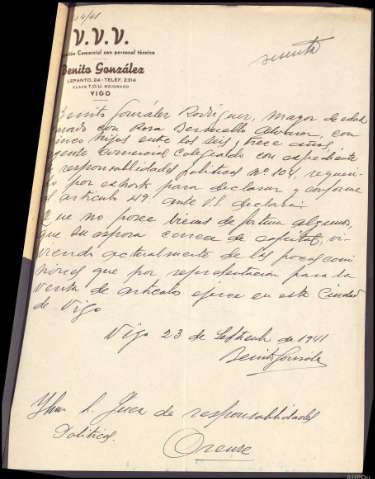 4/41
V. V. V.
Comercial con personal técnico
Benito González
LEPANTO, 24 - TELEF. 2314
VIGO
Benito González Rodríguez, mayor de edad
con Rosa Bernuello Alvarez, con
cinco hijos entre los seis y trece años,
Agente Comercial Colegiado con expediente
de responsabilidades politicas Nº 104 requeri
do por exhorto para declarar y conforme
el articulo 49 ante V.I. declara:
Que no posee bienes de fortuna alguno,
que su esposa carece de ellos, vi
viendo actualmente de las pocas comi
siones que por representacion para la
venta de articulo ejerce en esta Ciudad
de Vigo
Vigo 23 de Septiembre de 1941
Benito Gonzalez
Ylmo Sr. Juez de responsabilidades
Politicas.
Orense